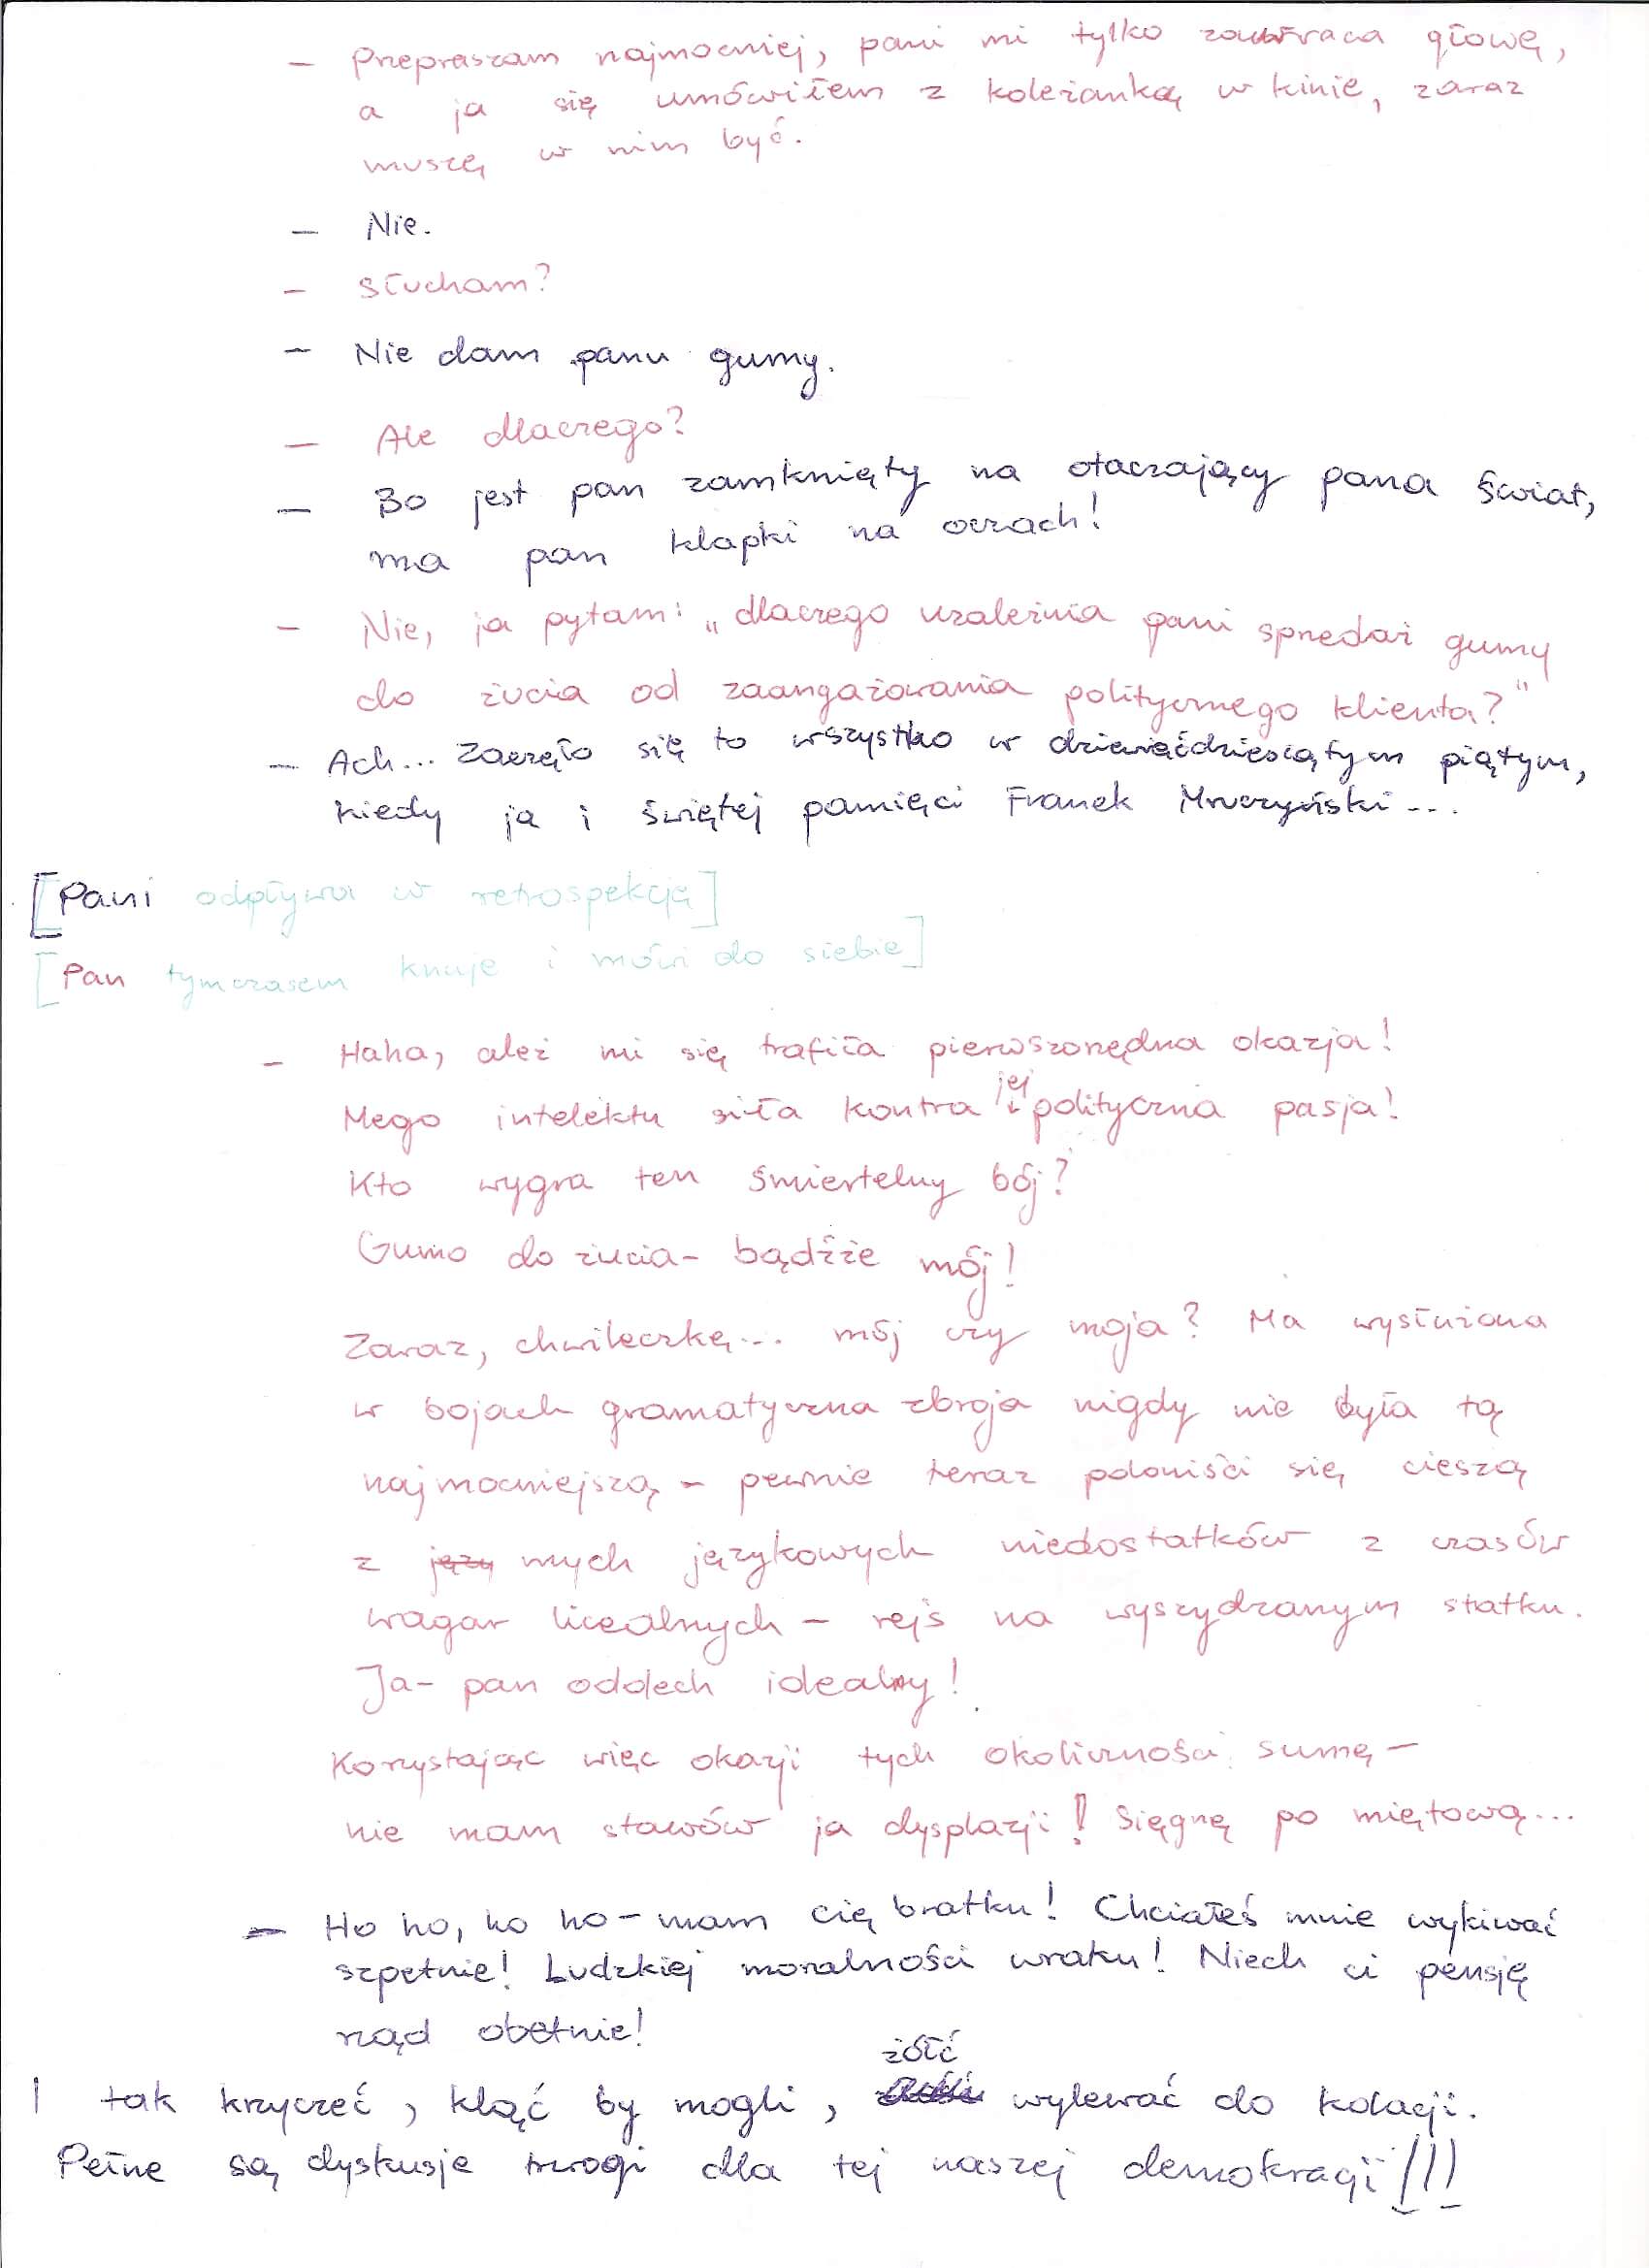 – Przepraszam najmocniej, pani mi tylko zawraca głowę,
a ja się umówiłem z koleżanką w kinie, zaraz
muszę w nim być.
– Nie.
– Słucham?
– Nie dam panu gumy.
– Ale dlaczego?
– Bo jest pan zamknięty na otaczający pana świat,
ma pan klapki na oczach!
– Nie, ja pytam: „dlaczego uzależnia pani sprzedaż gumy
do żucia od zaangażowania politycznego klienta?"
– Ach... Zaczęło się to wszystko w dziewięćdziesiątym piątym,
kiedy ja i świętej pamięci Franek Mruczyński...
[Pani odpływa w retrospekcję]
[Pan tymczasem knuje i mówi do siebie]
– Haha, ależ mi się trafiła pierwszorzędna okazja!
Mego intelektu siła kontra jej polityczna pasja!
Kto wygra ten śmiertelny bój?
Gumo do żucia – bądźże mój!
Zaraz, chwileczkę... mój czy moja? Ma wysłużona
w bojach gramatyczna zbroja nigdy nie była tą
najmocniejszą – pewnie teraz poloniści się cieszą
z języ mych językowych niedostatków z czasów
wagar licealnych – rejs na wyszydzanym statku.
Ja – pan oddech idealny!
Korzystając więc okazji tych okoliczności sumę –
nie mam stawów ja dysplazji! Sięgnę po miętową...
– Ho ho, ho ho – mam cię bratku! Chciałeś mnie wykiwać
szpetnie! Ludzkiej moralności wraku! Niech ci pensję
rząd obetnie!
I tak krzyczeć, kląć by mogli, żółć wylewać do kolacji.
Pełne są dyskusje trwogi dla tej naszej demokracji!!!